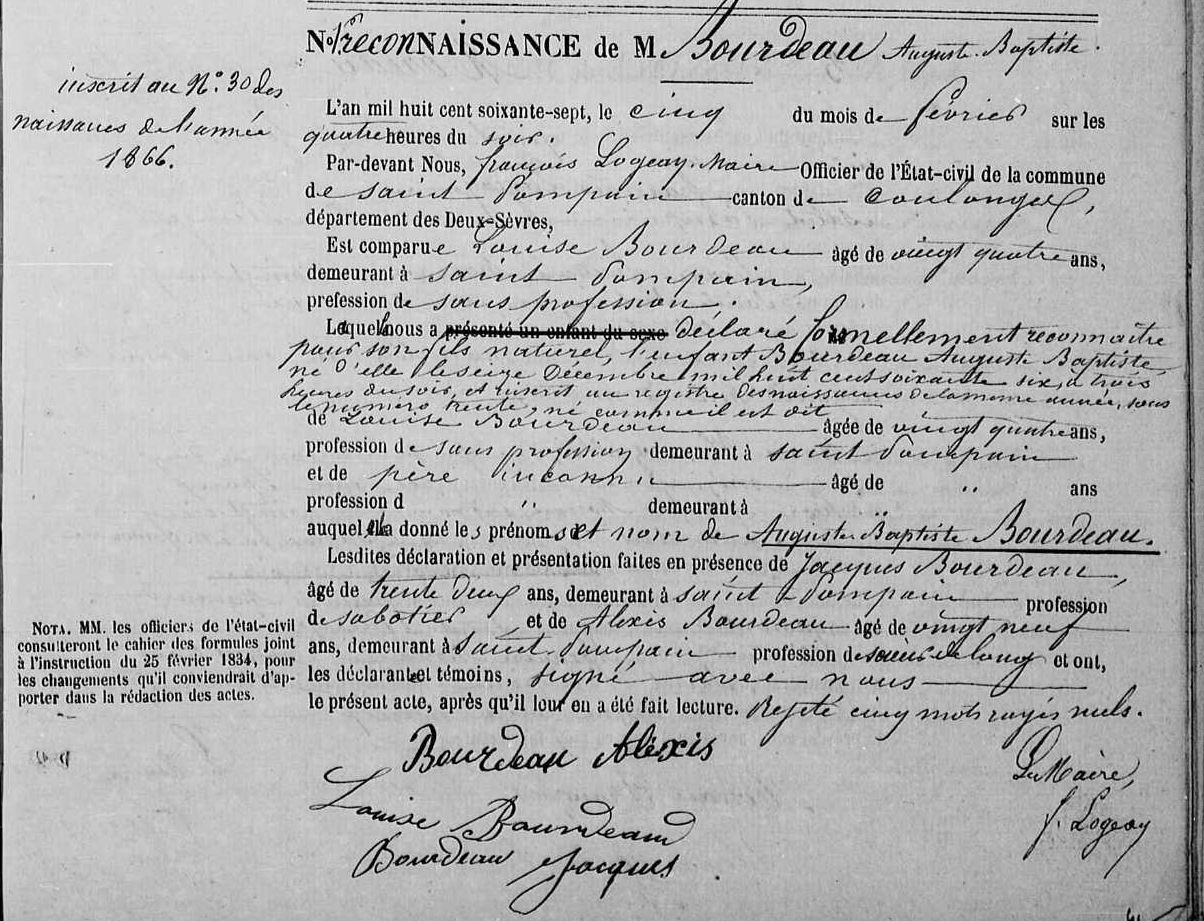 N° 1 reconNAISSANCE de M Bourdeau Auguste Baptiste.
inscrit au N° 30 des
naissances de l'année
1866.
L'an mil huit cent soixante-sept, le cinq du mois de février sur les
quatre heures du soir.
Par-devant Nous, françois Logeay, Maire Officier de l'État-civil de la commune
de saint Pompain canton de Coulonges,
département des Deux-Sèvres,
Est comparue Louise Bourdeau âgé de vingt quatre ans,
demeurant à saint Pompain,
prefession de sans profession.
Laquelle nous a présenté un enfant du sexe déclaré formellement reconnaître
pour son fils naturel, l'enfant Bourdeau Auguste Baptiste,
né d'elle le seize Décembre mil huit cent soixante six, à trois
heures du soir, et inscrit au registre des naissances de la même année, sous
le numéro trente, né comme il est dit
de Louise Bourdeau âgée de vingt quatre ans,
profession de sans profession demeurant à saint Pompain
et de père inconnu âgé de " ans
profession d " demeurant à "
auquel elle a donné les prénoms et nom de Auguste Baptiste Bourdeau.
Lesdites déclaration et présentation faites en présence de Jacques Bourdeau,
âgé de trente deux ans, demeurant à saint Pompain profession
de sabotier et de Alexis Bourdeau âgé de vingt neuf
ans, demeurant à Saint Pompain profession de scieur de long et ont,
les déclarante et témoins, signé avec nous
le présent acte, après qu'il leur en a été fait lecture. Rejeté cinq mots rayés nuls.
NOTA. MM. les officiers de l'état-civil
consulteront le cahier des formules joint
à l'instruction du 25 février 1834, pour
les changements qu'il conviendrait d'ap-
porter dans la rédaction des actes.
Bourdeau Aléxis
Le Maire,
Louise Bourdeaud
f. Logeay
Bourdeau Jacques